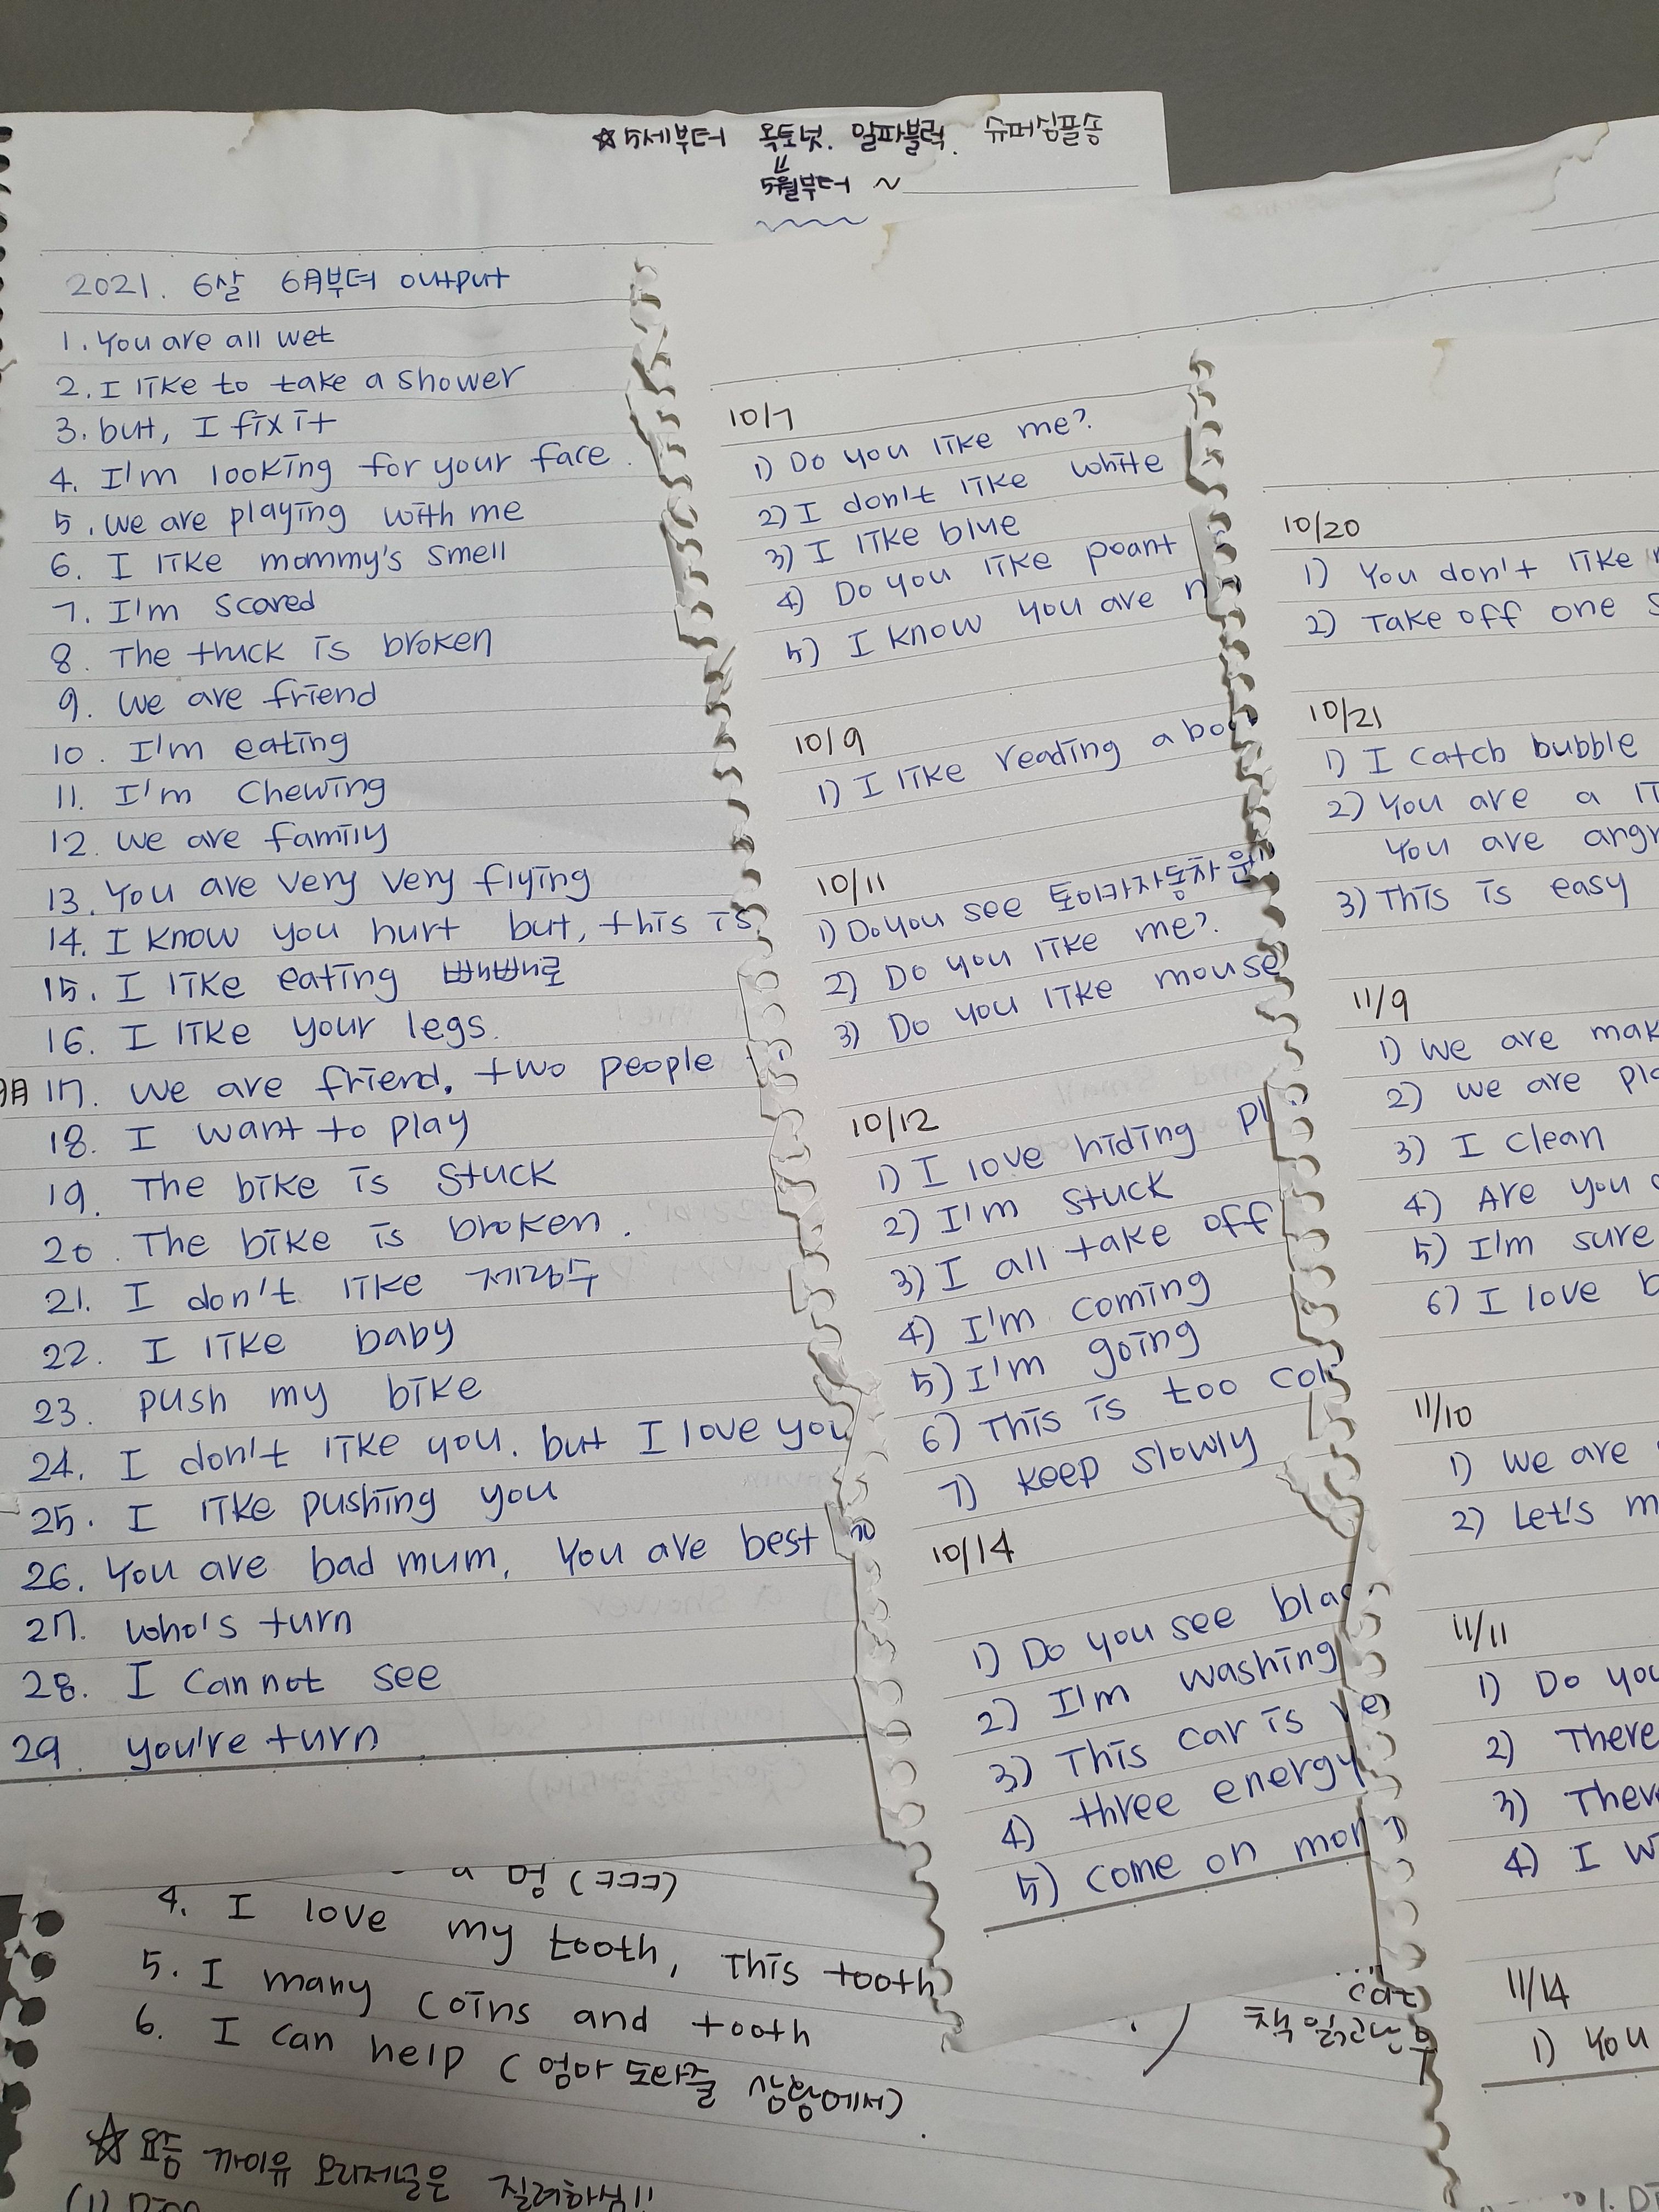 ☆5세부터 옥토넛. 알파블럭. 슈퍼심플송
=
5월부터 ~
2021. 6살 6月부터 output
1. You are all wet
2. I like to take a shower
3. but, I fix it
4. I'm looking for your face.
5. we are playing with me
6. I like mommy's smell
7. I'm scared
8. The truck is broken
9. we are friend
10. I'm eating
11. I'm chewing
12. we are family
13. You are very very flying
14. I know you hurt but, this is
15. I like eating 빼빼로
16. I like your legs.
9月 17. we are friend. two people
18. I want to play
19. The bike is stuck
20. The bike is broken.
21. I don't like 제랑수
22. I like baby
23. push my bike
24. I don't like you. but I love you
25. I like pushing you
26. You are bad mum, You are best
27. who's turn
28. I can not see
29. you're turn
10/7
1) Do you like me?
2) I don't like white
3) I like blue
4) Do you like poant
5) I know you are
10/9
1) I like reading a
10/11
1) Do you see 토이타자동차
2) Do you like me?
3) Do you like mouse
10/12
1) I love hiding
2) I'm stuck
3) I all take off
4) I'm coming
5) I'm going
6) This is too
7) keep slowly
10/14
1) Do you see
2) I'm washing
3) This car is
4) three energy
5) come on
10/20
1) You don't like
2) Take off one
10/21
1) I catch bubble
2) You are a
You are
3) This is easy
11/9
1) we are
2) we are
3) I clean
4) Are you
5) I'm sure
6) I love
11/10
1) we are
2) Let's
11/11
1) Do
2) There
3)
4) I
11/14
1) You
멍 (ㅋㅋㅋ)
4. I love my tooth, This tooth
5. I many coins and tooth
6. I can help (엄마 도와줄 상황에서)
cat
책 읽고난 후
☆ 요즘 까이유 오리지널은 질려하심!!